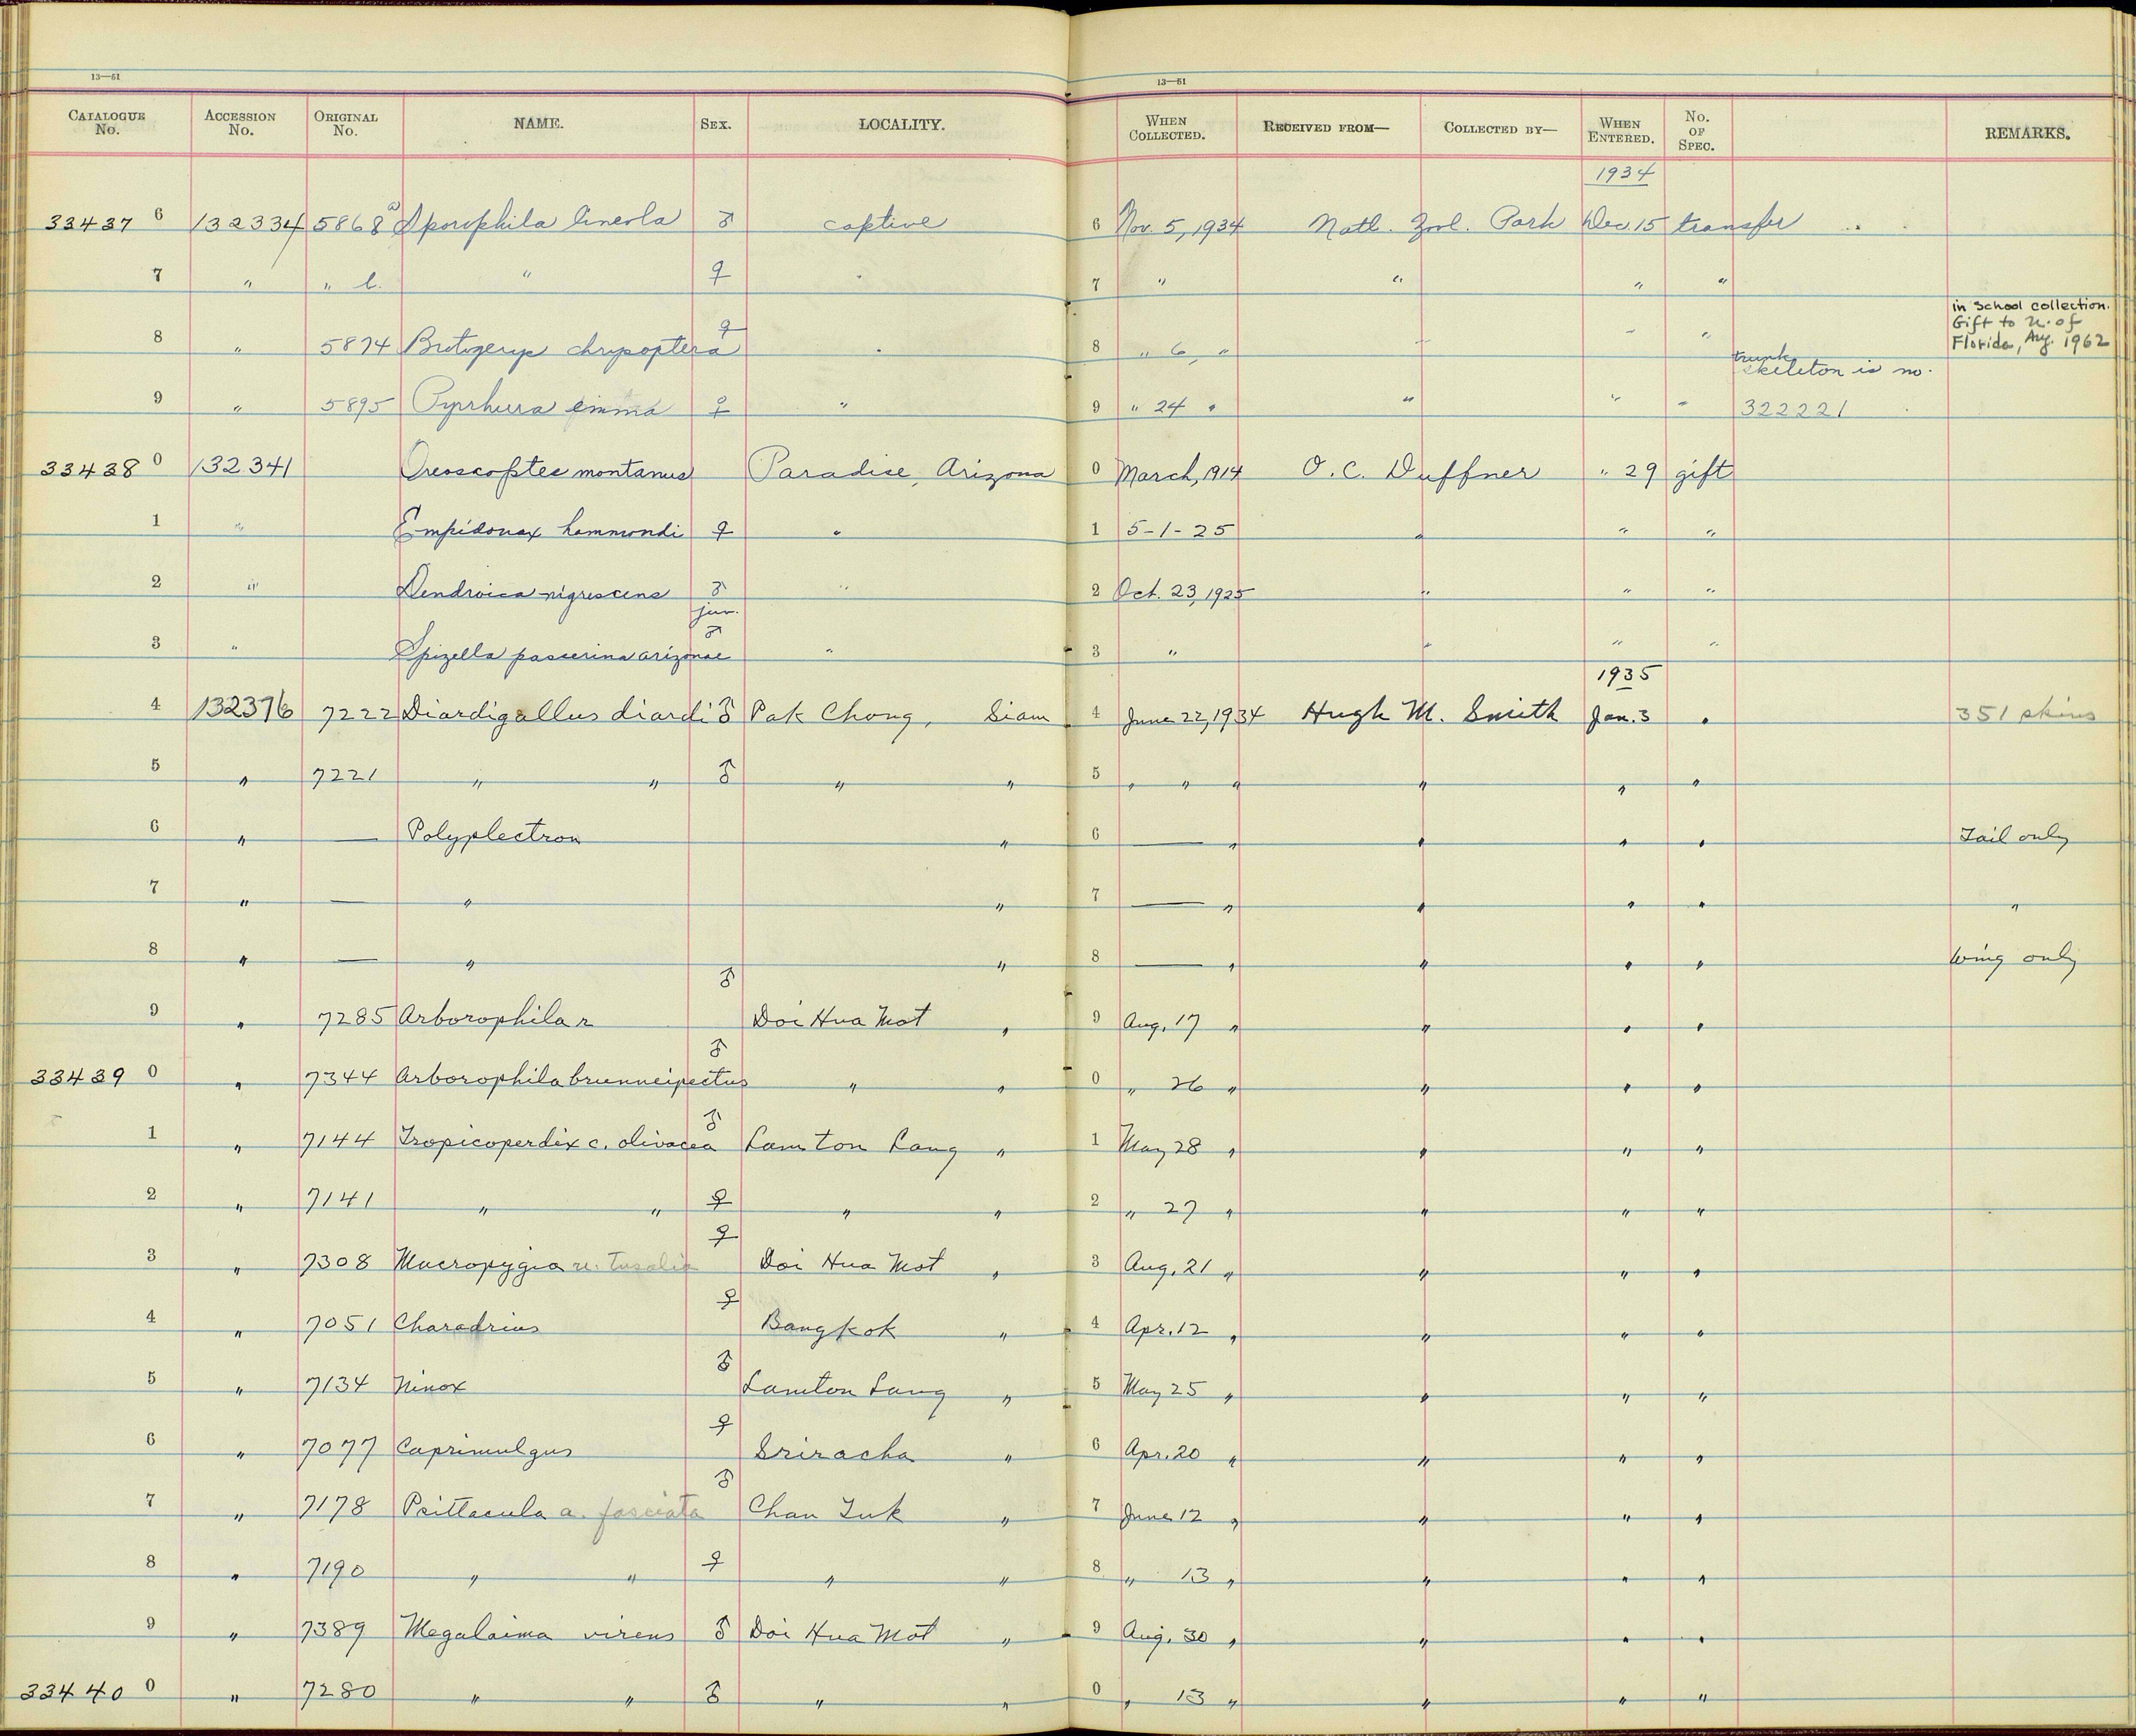 13—51 13—51
CATALOGUE No. ACCESSION No. ORIGINAL No. NAME. SEX. LOCALITY. WHEN COLLECTED. RECEIVED FROM— COLLECTED BY— WHEN ENTERED. No. OF SPEC. REMARKS.
1934
33437 6 132334 5868 a Sporophila lineola ♂ captive 6 Nov. 5, 1934 Natl. Zool. Park Dec. 15 transfer
7 " " b. " ♀ " 7 " " " "
in school collection.
Gift to U. of
Florida, Aug. 1962
8 " 5874 Brotogerys chrysoptera ♀ " 8 " 6, " " " "
trunk
skeleton is no.
9 " 5895 Pyrrhura emma ♀ " 9 " 24 " " " " 322221
33438 0 132341 Oreoscoptes montanus Paradise, Arizona 0 March, 1914 O. C. Duffner " 29 gift
1 " Empidonax hammondi ♀ " 1 5-1-25 " " "
2 " Dendroica nigrescens ♂ " 2 Oct. 23, 1925 " " "
juv.
3 " Spizella passerina arizonae ♂ " 3 " " " "
1935
4 132376 7222 Diardigallus diardi ♂ Pak Chong, Siam 4 June 22, 1934 Hugh M. Smith Jan. 3 " 351 skins
5 " 7221 " " ♂ " " 5 " " " " " "
6 " — Polyplectron " 6 — " " " " Tail only
7 " — " " 7 — " " " " "
8 " — " " 8 — " " " " Wing only
9 " 7285 Arborophila r ♂ Doi Hua Mot " 9 Aug. 17 " " " "
33439 0 " 7344 Arborophila brunneipectus ♂ " " 0 " 26 " " " "
1 " 7144 Tropicoperdix c. olivacea ♂ Lam ton Lang " 1 May 28 " " " "
2 " 7141 " " ♀ " " 2 " 27 " " " "
3 " 7308 Macropygia u. tusalia ♀ Doi Hua Mot " 3 Aug. 21 " " " "
4 " 7051 Charadrius ♀ Bangkok " 4 Apr. 12 " " " "
5 " 7134 Ninox ♂ Lamton Lang " 5 May 25 " " " "
6 " 7077 Caprimulgus ♀ Sriracha " 6 Apr. 20 " " " "
7 " 7178 Psittacula a. fasciata ♂ Chan Tuk " 7 June 12 " " " "
8 " 7190 " " ♀ " " 8 " 13 " " " "
9 " 7389 Megalaima virens ♂ Doi Hua Mot " 9 Aug. 30 " " " "
33440 0 " 7280 " " ♂ " " 0 " 13 " " " "